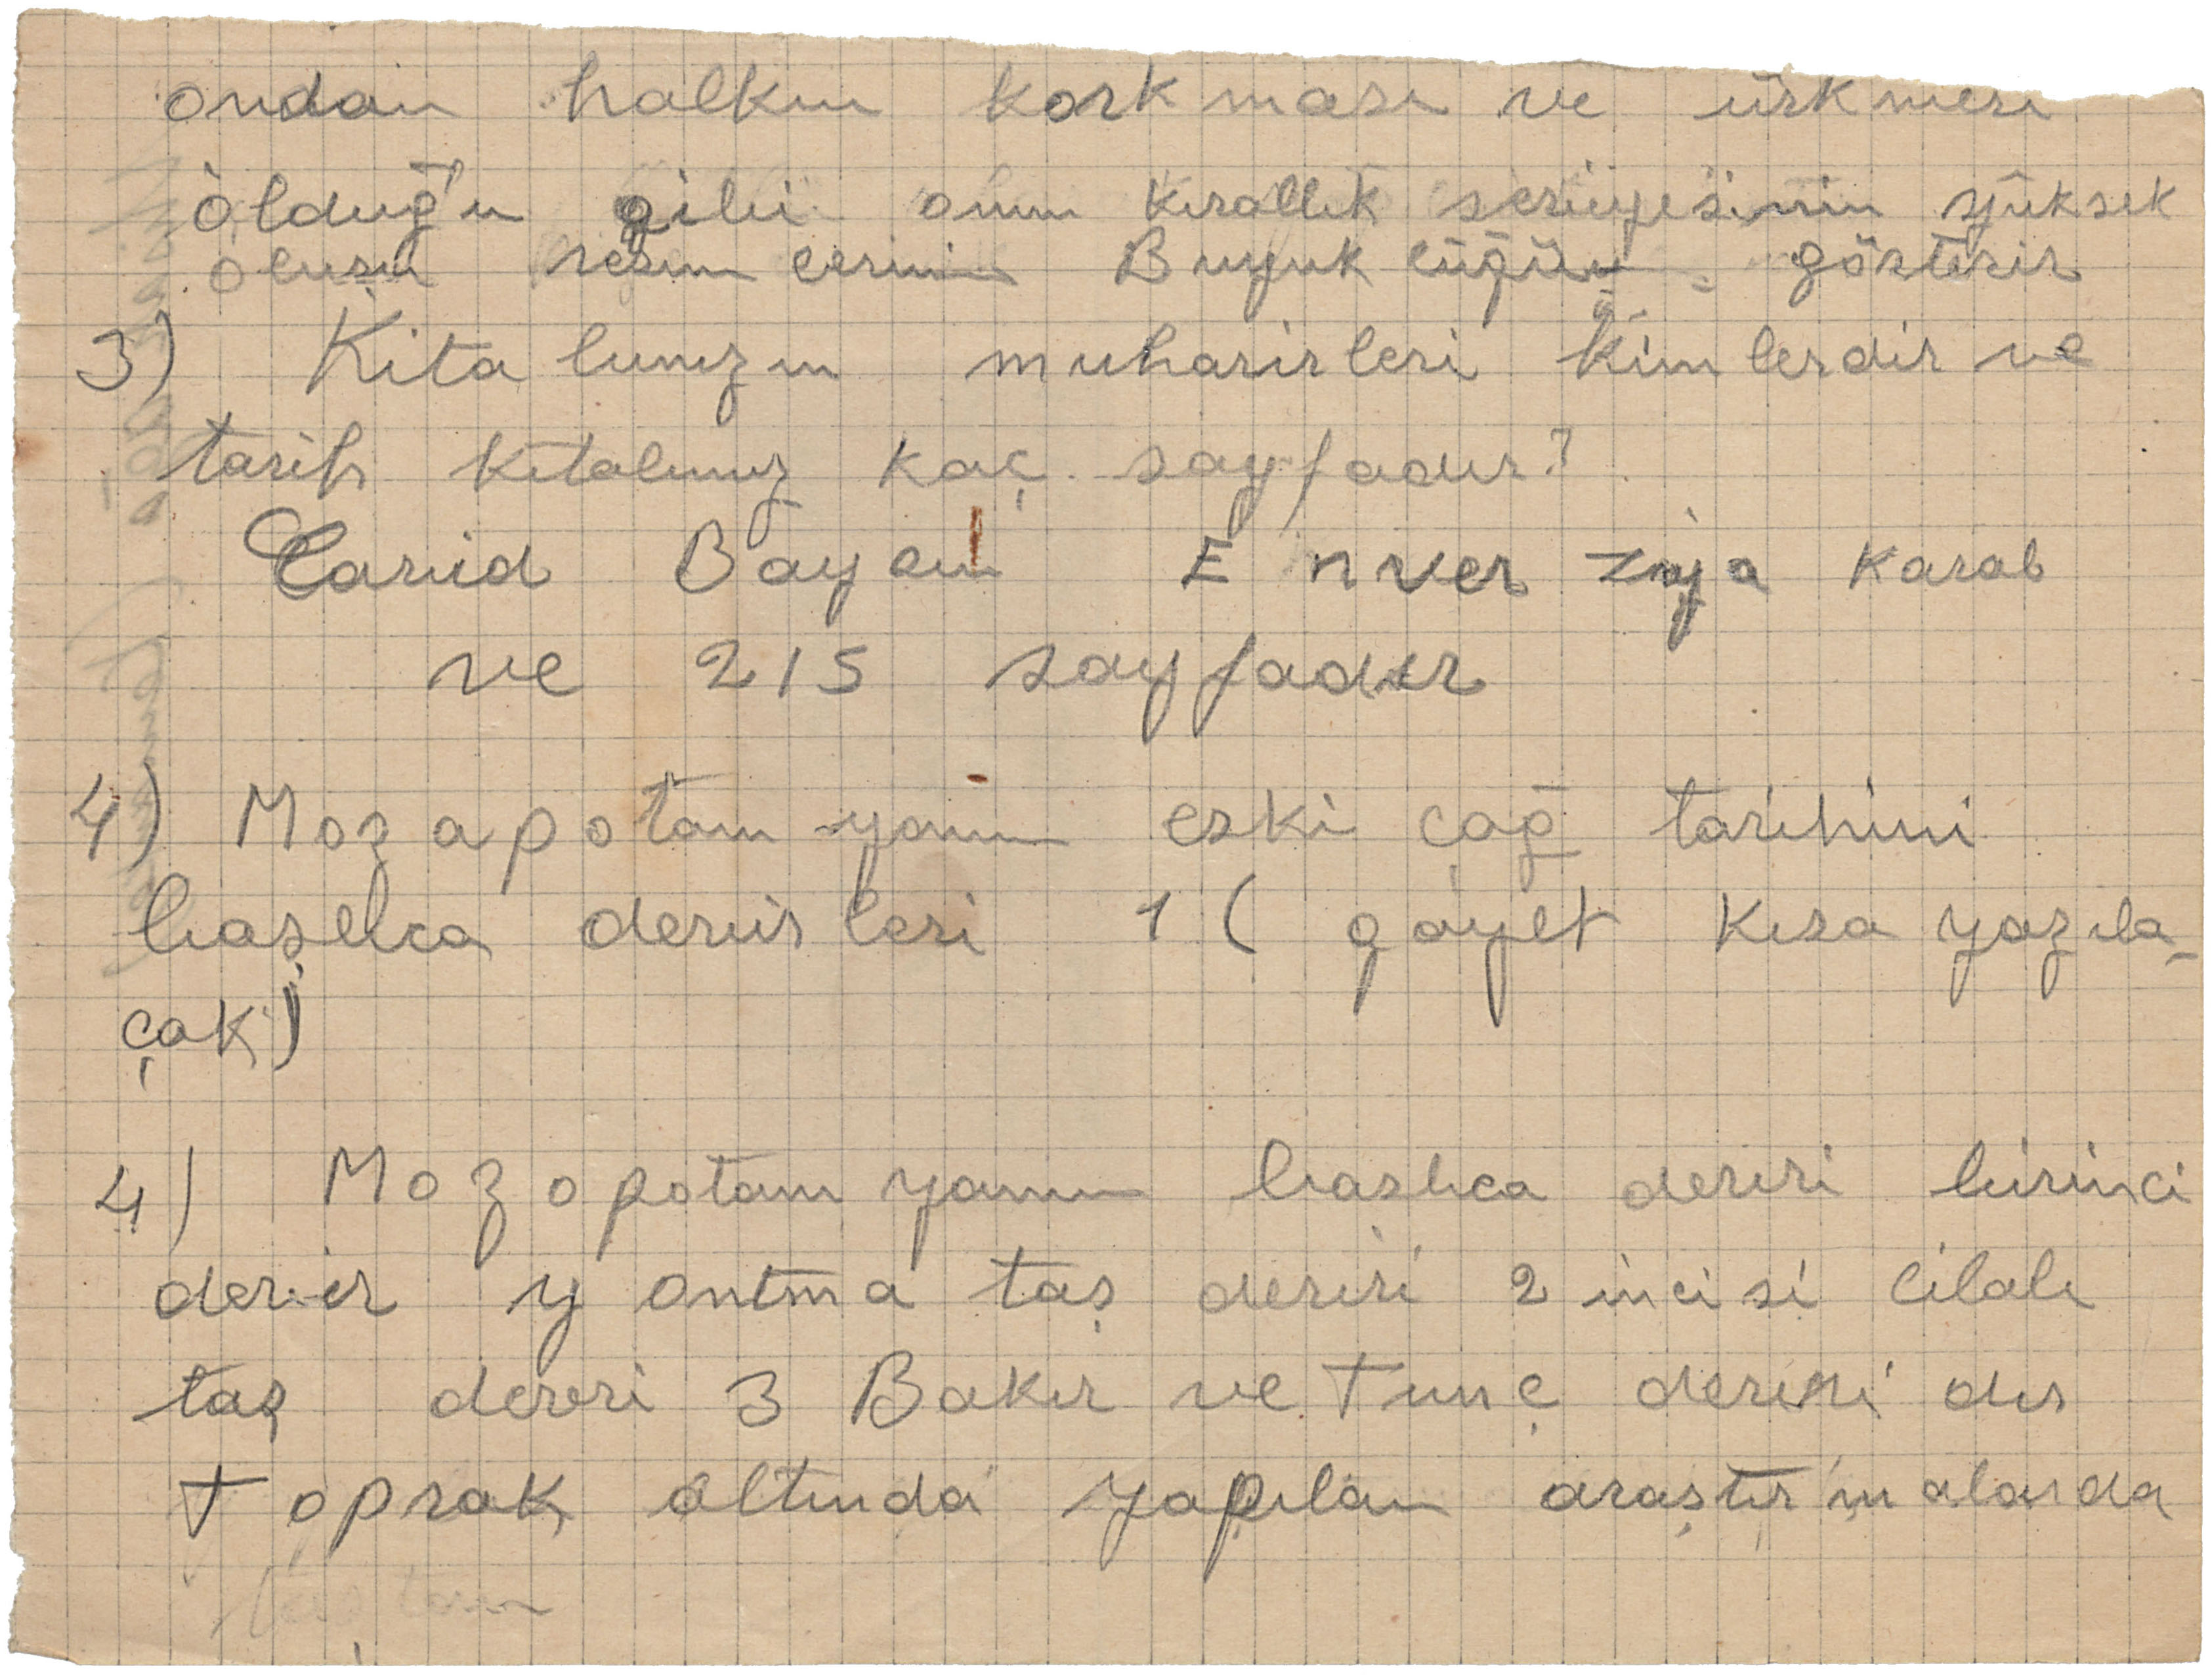 ondan halkın korkması ve ürkmesi
olduğu gibi onun kırallık seviyesinin yüksek
oluşu resimlerinin Buyuklüğünü gösterir
3) Kitabımızın muharirleri kimlerdir ve
tarih kitabımız kaç sayfadır?
Cavid Baysun Enver ziya karal
ve 215 sayfadır
4) Mozapotamyanın eski çağ tarihini
başlıca devirleri 1 ( gayet kısa yazıla-
çak)
4) Mozopotamyanın başlıca deviri birinci
devir yontma taş deviri 2 incisi cilalı
taş devri 3 Bakır ve Tunç deviri dır
Toprak altında yapılan araştırmalarda